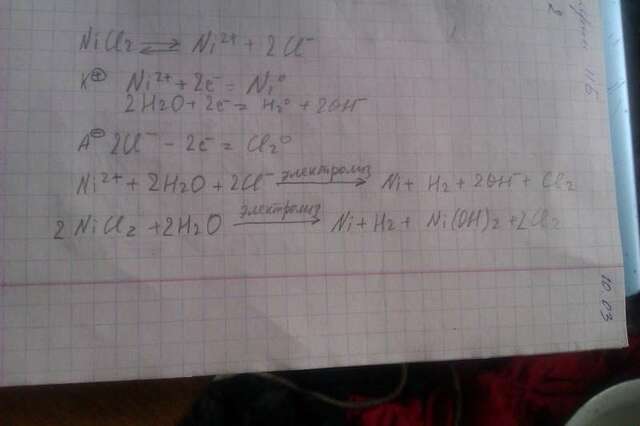 NiCl2 ⇌ Ni²⁺ + 2Cl⁻
K⊕ Ni²⁺ + 2e⁻ = Ni⁰
2H2O + 2e⁻ = H2⁰ + 2OH⁻
A⊖ 2Cl⁻ - 2e⁻ = Cl2⁰
Ni²⁺ + 2H2O + 2Cl⁻ электролиз → Ni + H2 + 2OH⁻ + Cl2
2NiCl2 + 2H2O электролиз → Ni + H2 + Ni(OH)2 + 2Cl2
11Б
10.03